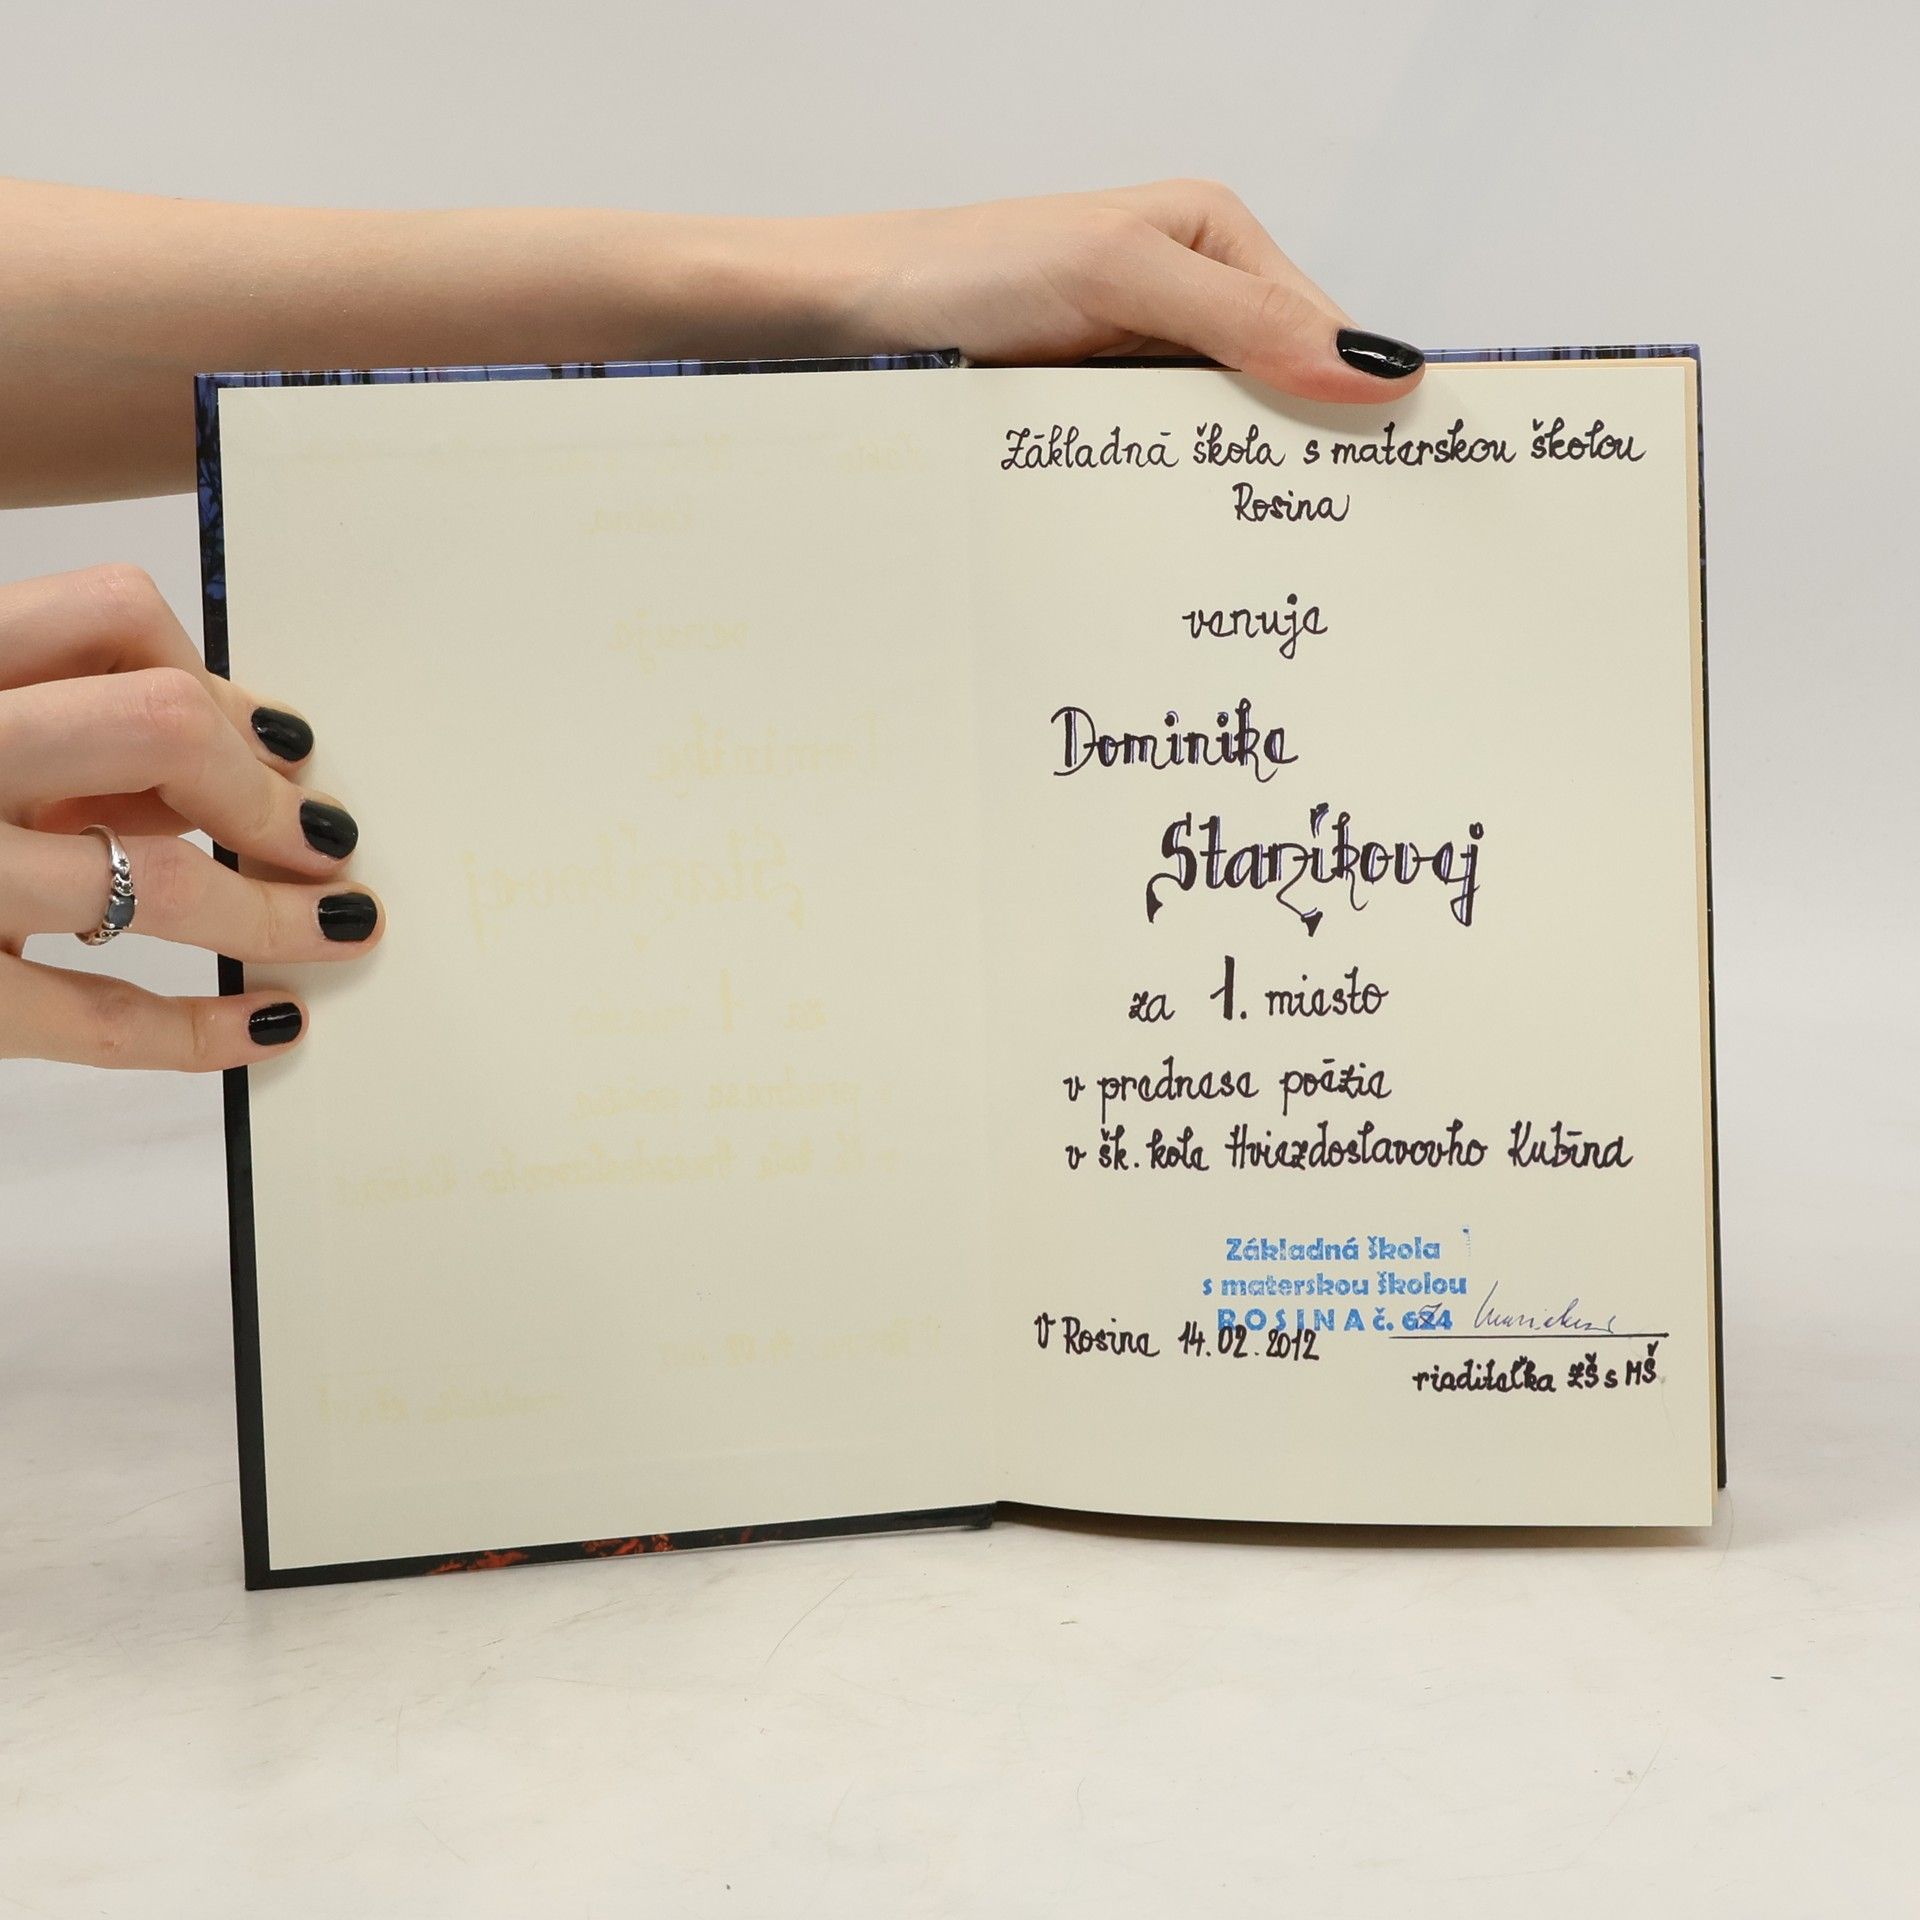 Základná škola s materskou školou
Rosina
venuje
Dominike
Staríkovej
za 1. miesto
v prednese poézie
v šk. kole Hviezdoslavovho Kubína
Základná škola
s materskou školou
ROSINA č. 624
V Rosine 14.02.2012
riaditeľka ZŠ s MŠ